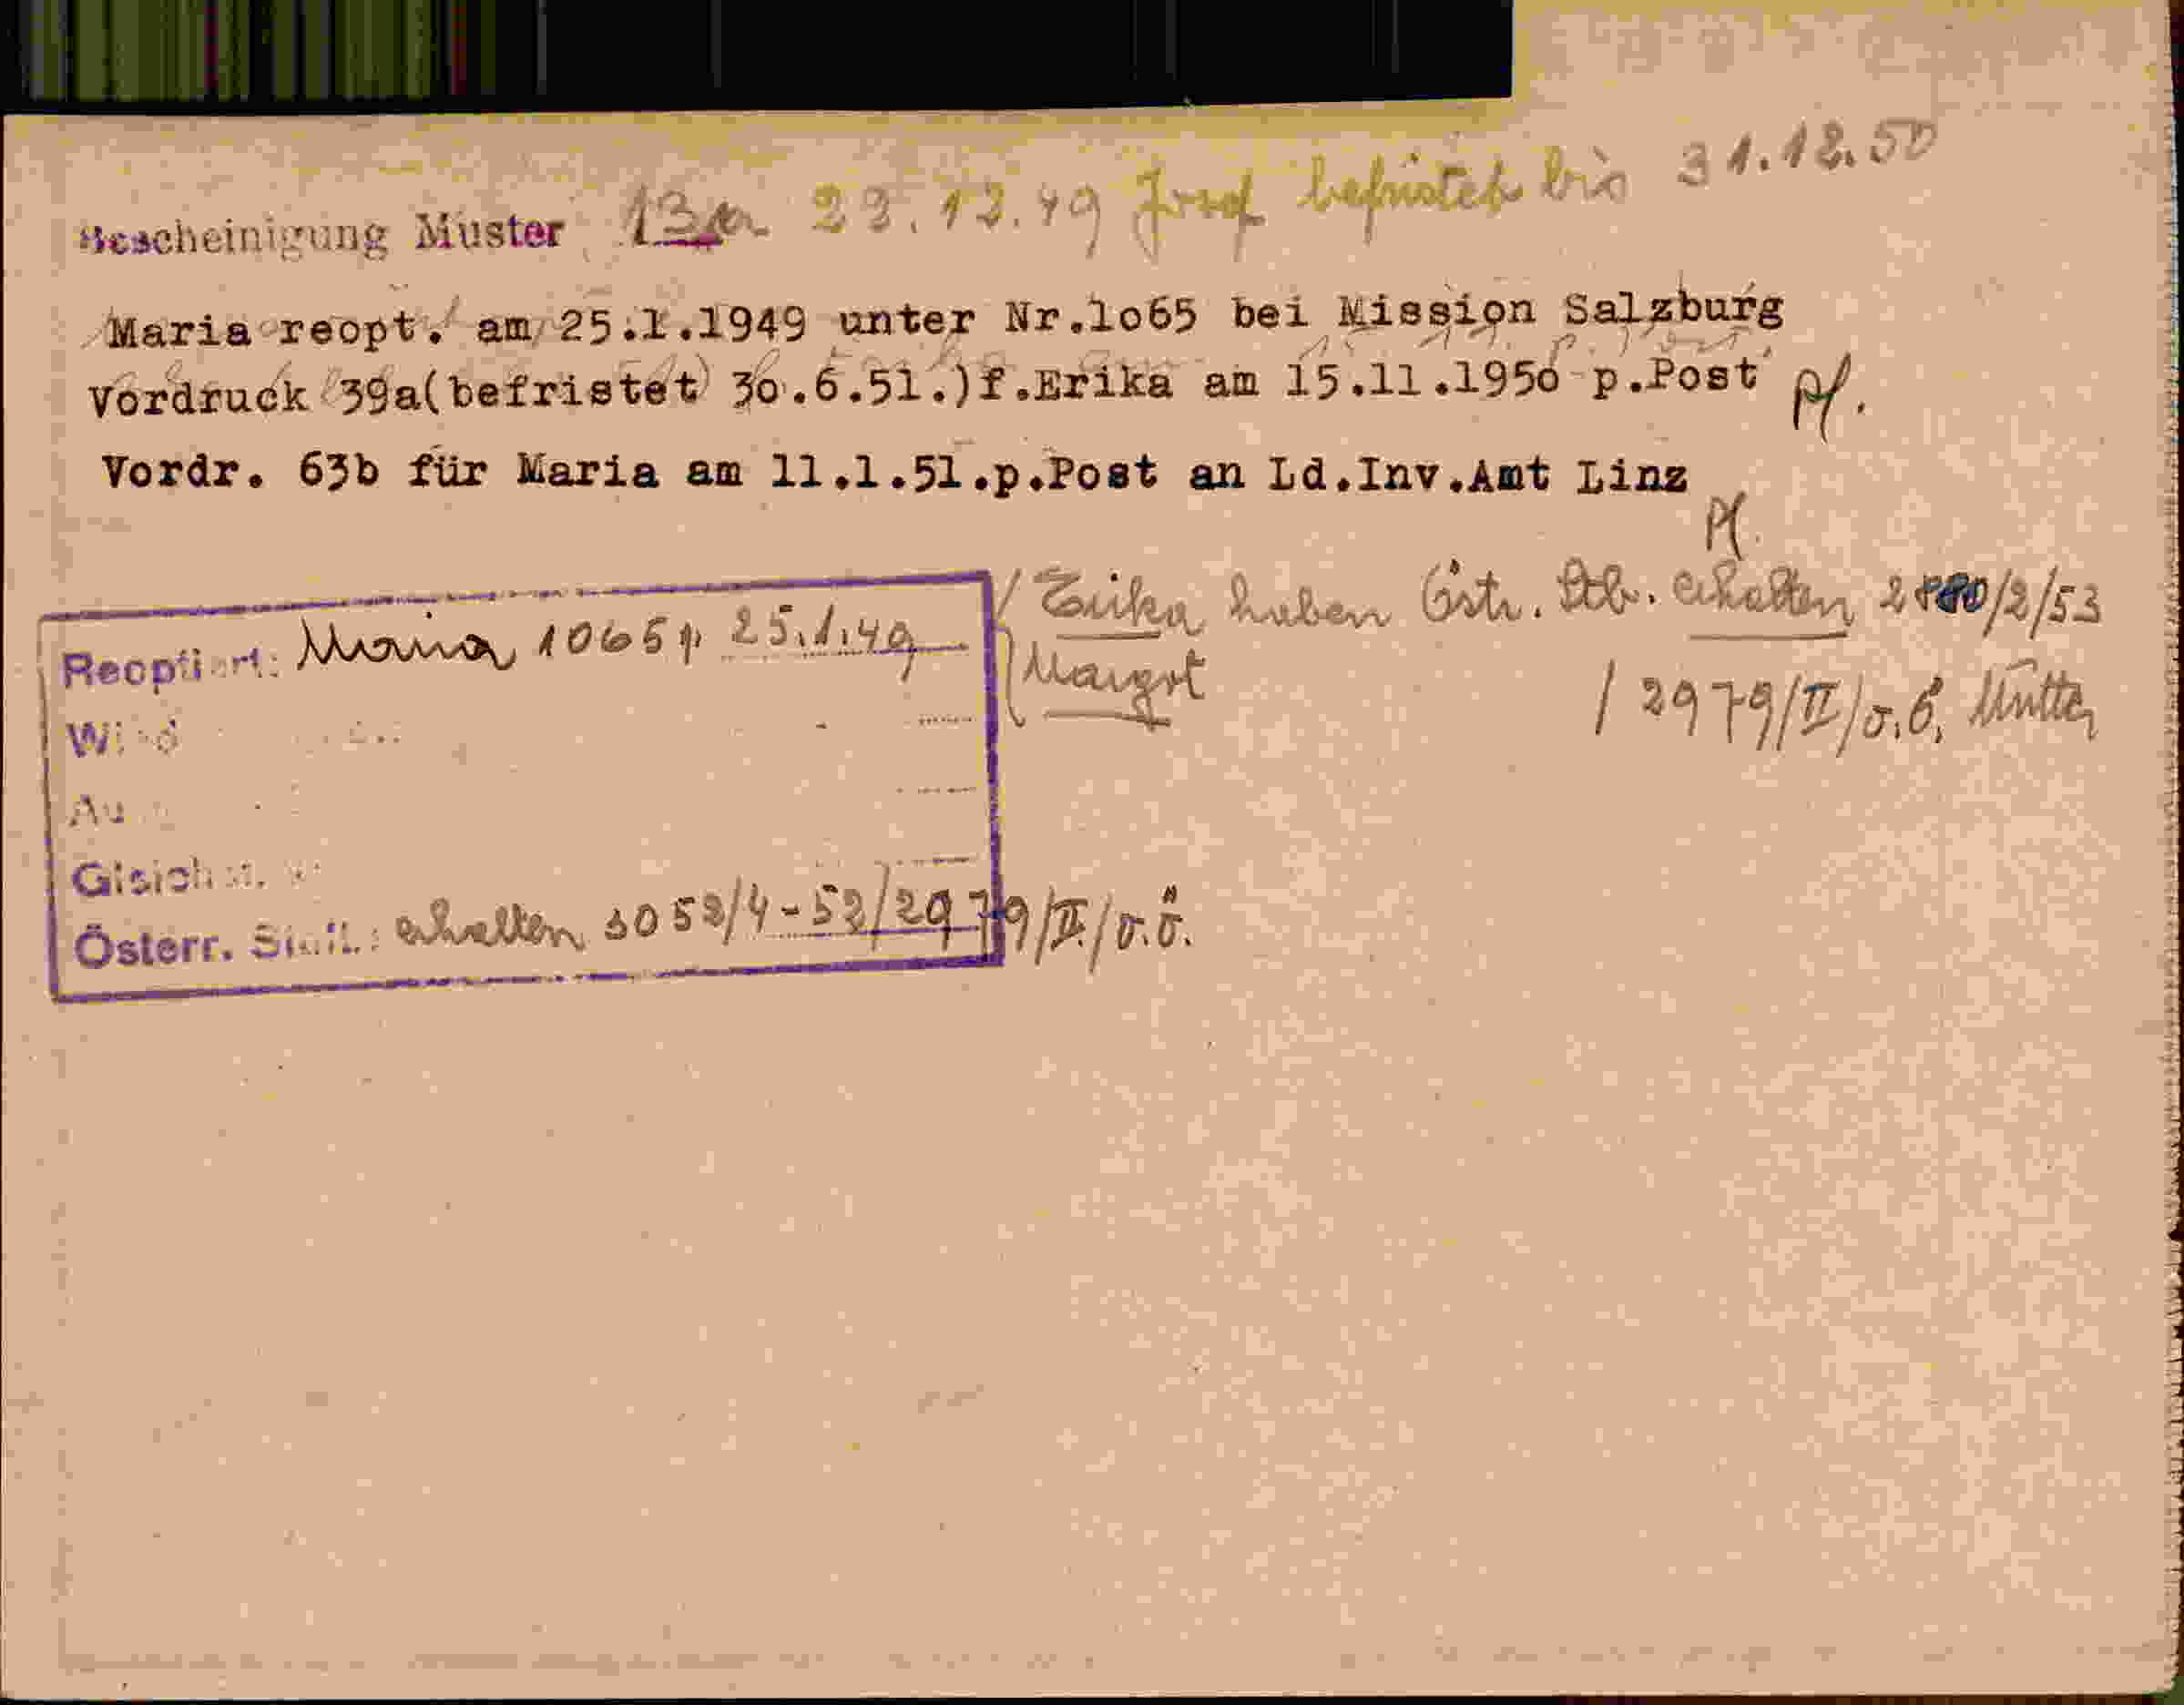 Bescheinigung Muster 13a 22.12.49 Josef befristet bis 31.12.50
Maria reopt. am 25.1.1949 unter Nr.1o65 bei Mission Salzburg
Vordruck 39a(befristet 3o.6.51.)f.Erika am 15.11.195o p.Post Pf.
Vordr. 63b für Maria am 11.1.51.p.Post an Ld.Inv.Amt Linz
Pf.
Erika haben Östr. Stb. erhalten /2/53
Margot
/ 2979/II/o.ö. Mutter
Reoptiert: Maria 1065 25.1.49
Österr. erhalten 1052/4-52/2979/II/o.ö.